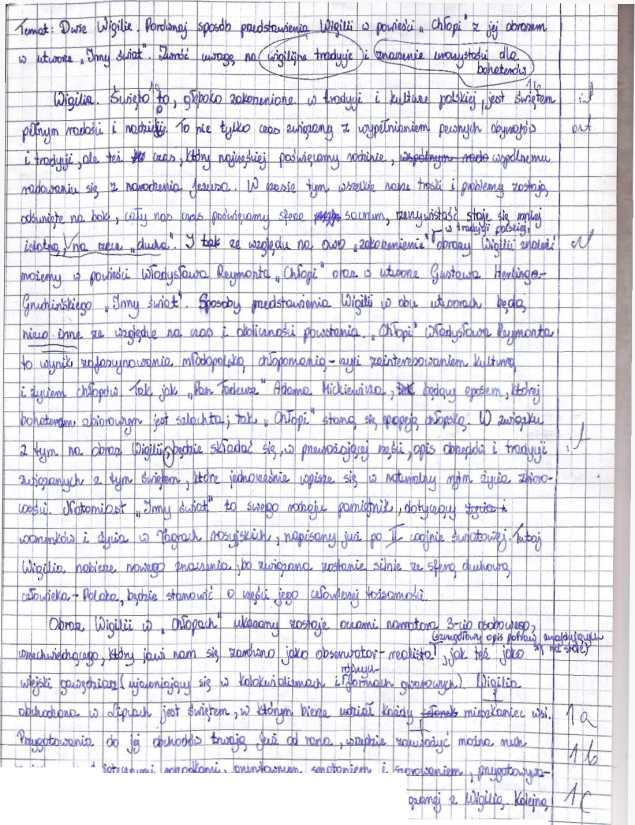 Temat: Dwie Wigilie. Porównaj sposób przedstawienia Wigilii w powieści „Chłopi” z jej obrazem
w utworze „Inny świat”. Zwróć uwagę na wigilijne tradycje i znaczenie uroczystości dla
bohaterów
Wigilia. Święto to, głęboko zakorzenione w tradycji i kulturze polskiej, jest świętem
pełnym radości i nadziei. To nie tylko czas związany z wypełnianiem pewnych obyczajów
i tradycji, ale też czas, który najczęściej poświęcamy rodzinie, wspólnemu
radowaniu się z narodzenia Jezusa. W czasie tym wszelkie nasze troski i problemy zostają
odsunięte na bok, cały nasz czas poświęcamy sferze sacrum, rzeczywistość staje się mniej
istotna, na rzecz „ducha”. I tak ze względu na owo „zakorzenienie” w tradycji polskiej, obrazy Wigilii znaleźć
możemy w powieści Władysława Reymonta „Chłopi” oraz w utworze Gustawa Herlinga-
Grudzińskiego „Inny świat”. Sposoby przedstawienia Wigilii w obu utworach będą
nieco inne ze względu na czas i okoliczności powstania. „Chłopi” Władysława Reymonta
to wynik zafascynowania młodopolską chłopomanią - czyli zainteresowaniem kulturą
i życiem chłopów. Tak jak „Pan Tadeusz” Adama Mickiewicza, będący eposem, której
bohaterem zbiorowym jest szlachta; tak „Chłopi” staną się epopeją chłopską. W związku
z tym na obraz Wigilii będzie składać się, w przeważającej części, opis obrzędów i tradycji
związanych z tym świętem, które jednocześnie wpisze się w naturalny rytm życia zbioro-
wości. Natomiast „Inny świat” to swego rodzaju pamiętnik, dotyczący
warunków i życia w łagrach rosyjskich, napisany już po II wojnie światowej. Tutaj
Wigilia nabierze nowego znaczenia, bo związana zostanie silnie ze sferą duchową
człowieka - Polaka, będzie stanowić o części jego całkowitej tożsamości.
Obraz Wigilii w „Chłopach” ukazany zostaje oczami narratora 3-cio osobowego,
wszechwiedzącego, który jawi nam się zarówno jako obserwator-realista (szczegółowy opis potraw znajdujących się na stole), jak też jako
wiejski gawędziarz (ujawniający się w kolokwializmach i formach gwarowych). Wigilia
obchodzona w Lipcach jest świętem, w którym bierze udział każdy mieszkaniec wsi.
Przygotowania do jej obchodów trwają już od rana, wszędzie zauważyć można ruch
porządkami, sprzątaniem i szorowaniem, przygotowywa-
z Wigilią. Kolejną
1a
1b
1c